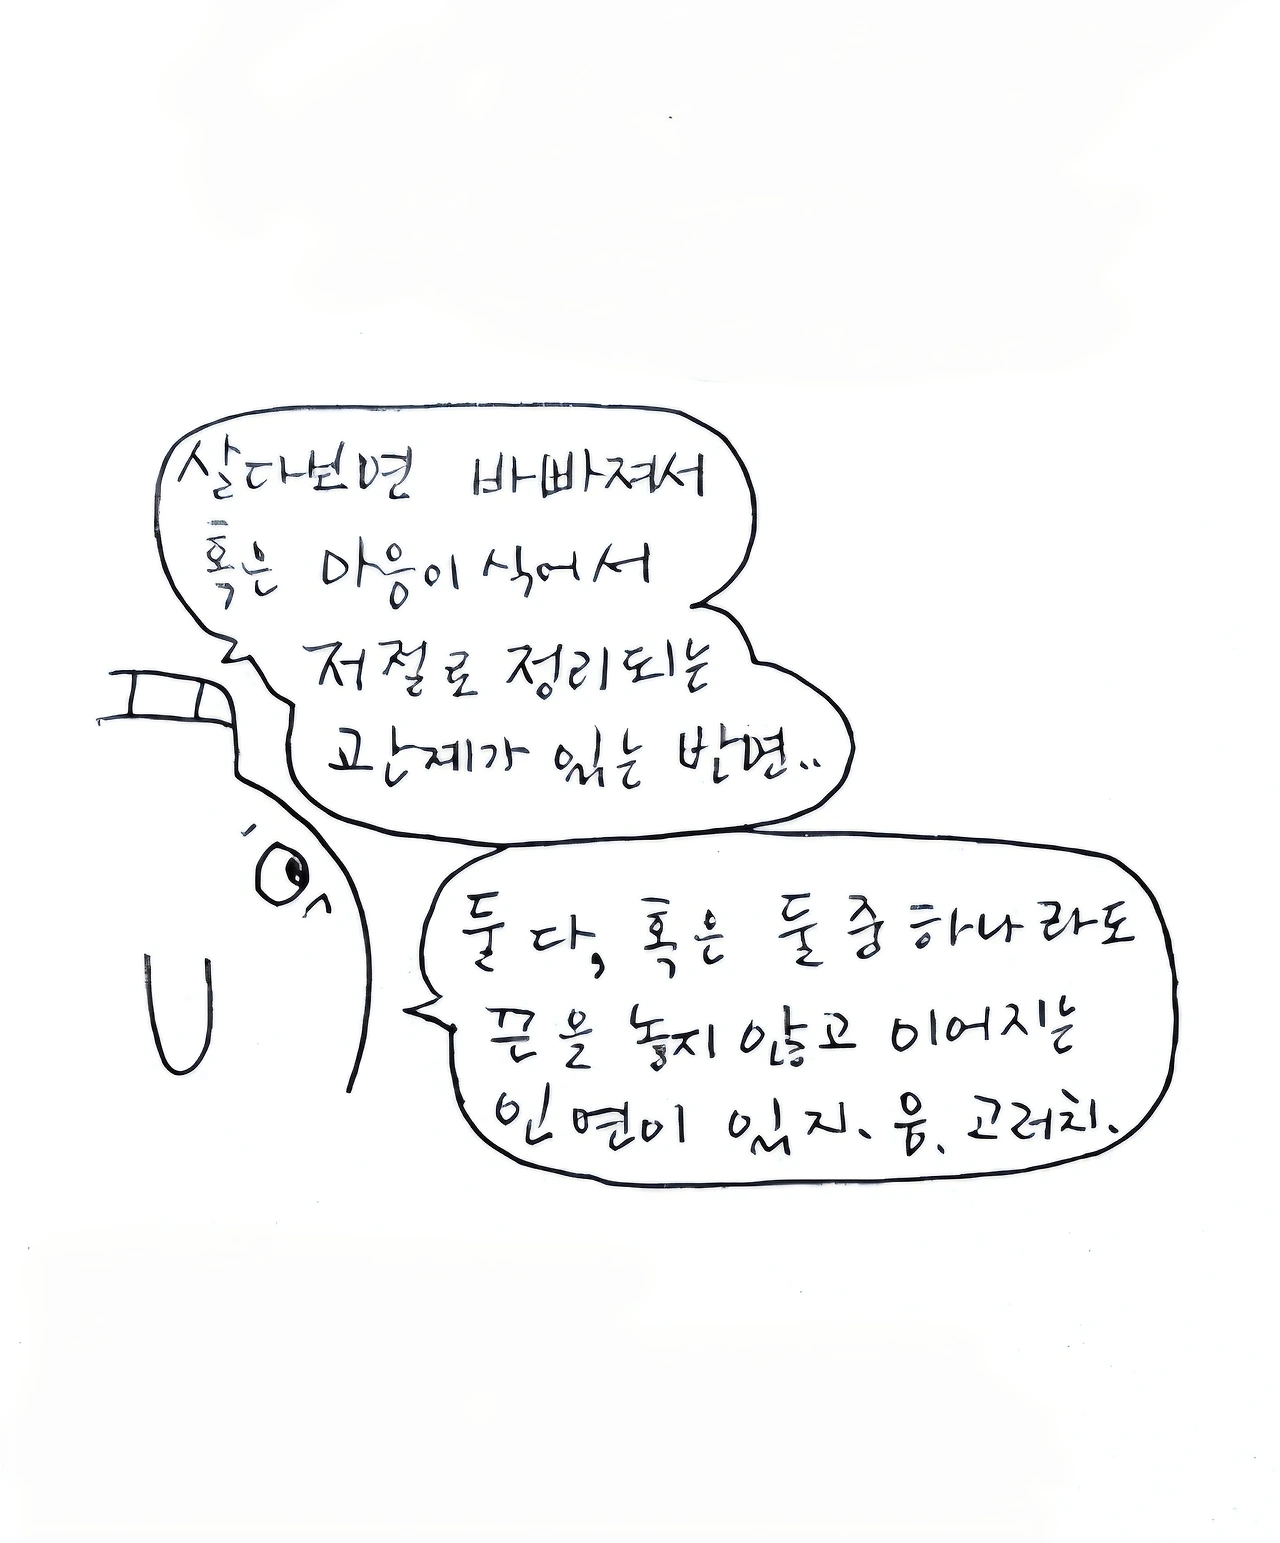 살다보면 바빠져서
혹은 마음이 식어서
저절로 정리되는
관계가 있는 반면..
둘 다, 혹은 둘 중 하나라도
끈을 놓지 않고 이어지는
인연이 있지. 음. 고러치.